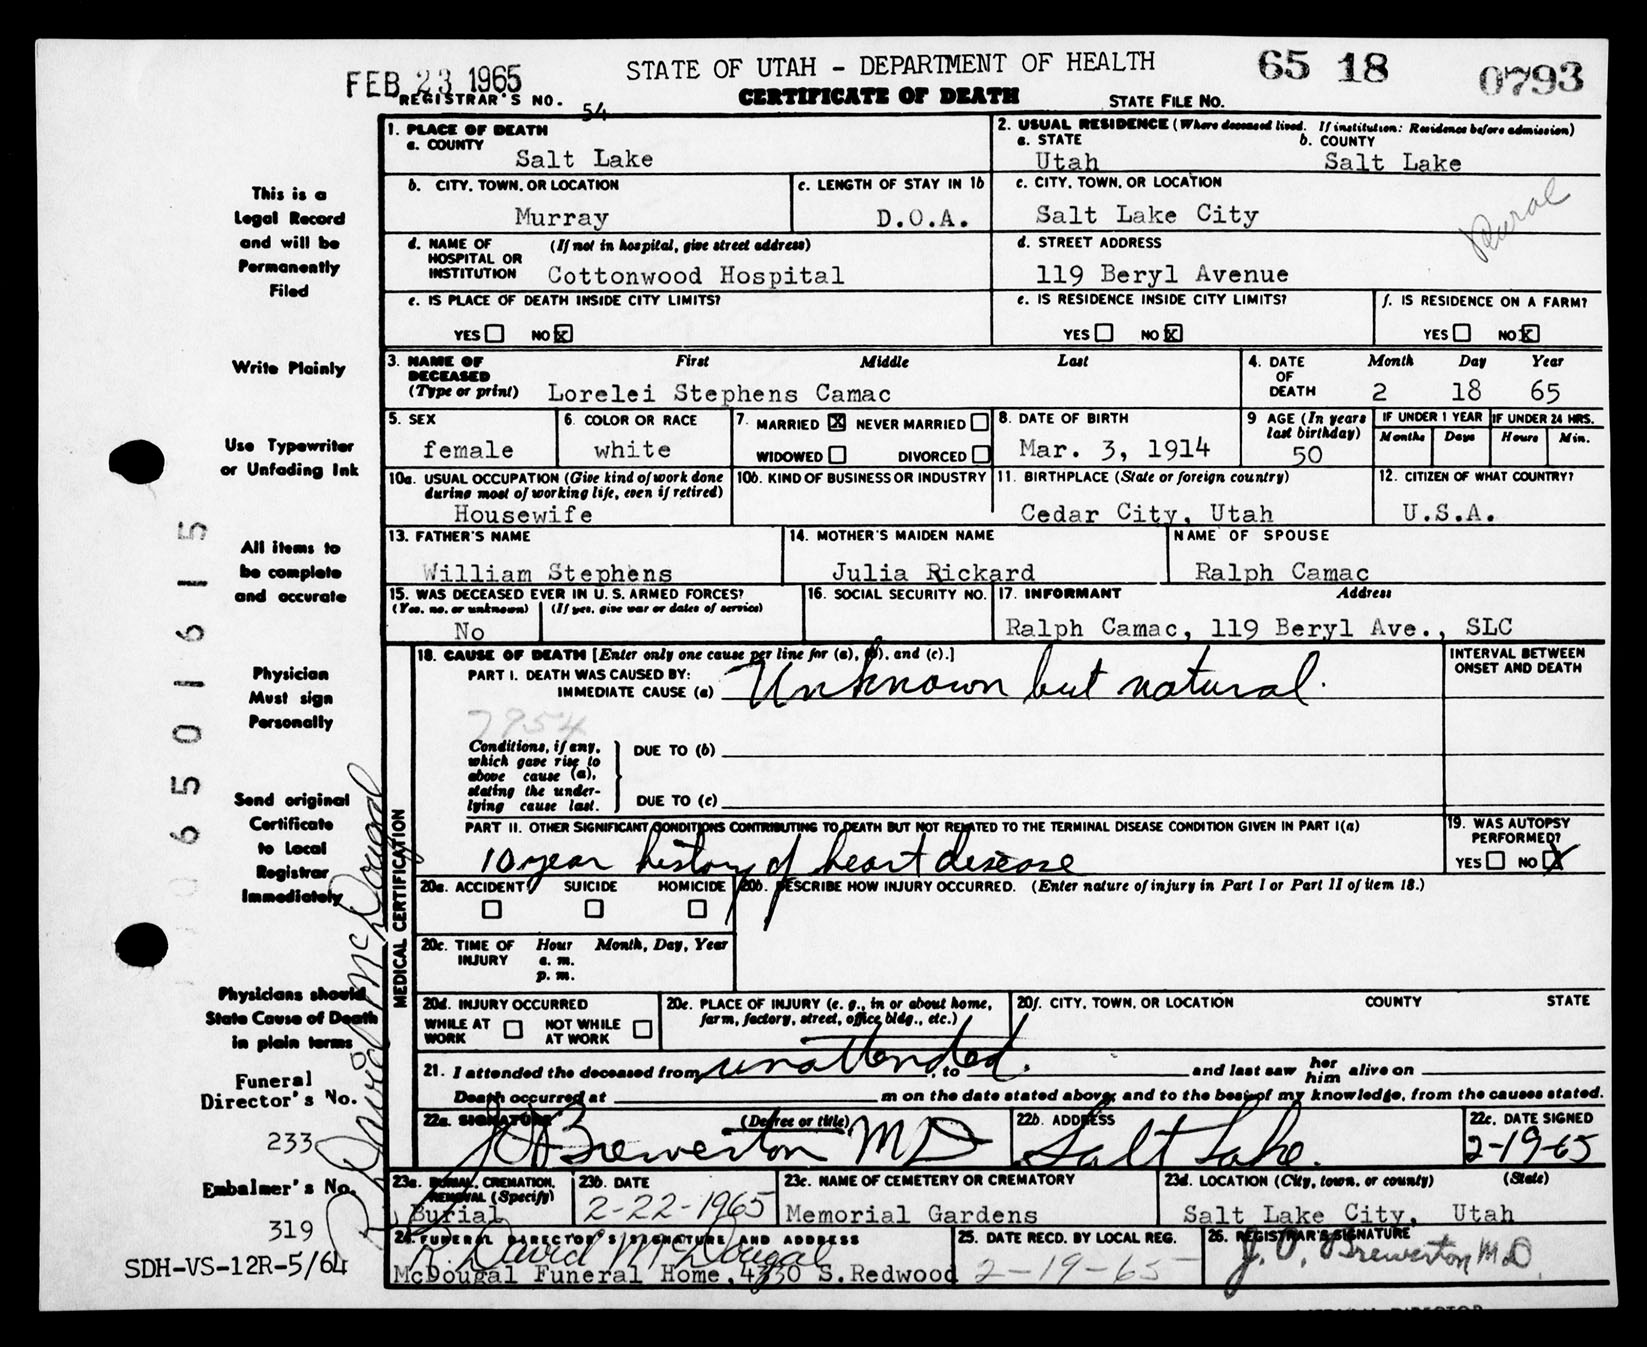 FEB 23 1965
STATE OF UTAH - DEPARTMENT OF HEALTH
65 18 0793
REGISTRAR'S NO. 54
CERTIFICATE OF DEATH
STATE FILE NO.
1. PLACE OF DEATH
a. COUNTY
Salt Lake
2. USUAL RESIDENCE (Where deceased lived. If institution: Residence before admission)
a. STATE b. COUNTY
Utah Salt Lake
b. CITY, TOWN, OR LOCATION
Murray
c. LENGTH OF STAY IN 1b
D.O.A.
c. CITY, TOWN, OR LOCATION
Salt Lake City
Rural
d. NAME OF HOSPITAL OR INSTITUTION
(If not in hospital, give street address)
Cottonwood Hospital
d. STREET ADDRESS
119 Beryl Avenue
e. IS PLACE OF DEATH INSIDE CITY LIMITS?
YES NO X
e. IS RESIDENCE INSIDE CITY LIMITS?
YES NO X
f. IS RESIDENCE ON A FARM?
YES NO X
3. NAME OF DECEASED (Type or print)
First Middle Last
Lorelei Stephens Camac
4. DATE OF DEATH
Month Day Year
2 18 65
5. SEX
female
6. COLOR OR RACE
white
7. MARRIED X NEVER MARRIED
WIDOWED DIVORCED
8. DATE OF BIRTH
Mar. 3, 1914
9 AGE (In years last birthday)
50
IF UNDER 1 YEAR
Months Days
IF UNDER 24 HRS.
Hours Min.
10a. USUAL OCCUPATION (Give kind of work done during most of working life, even if retired)
Housewife
10b. KIND OF BUSINESS OR INDUSTRY
11. BIRTHPLACE (State or foreign country)
Cedar City, Utah
12. CITIZEN OF WHAT COUNTRY?
U.S.A.
13. FATHER'S NAME
William Stephens
14. MOTHER'S MAIDEN NAME
Julia Rickard
NAME OF SPOUSE
Ralph Camac
15. WAS DECEASED EVER IN U.S. ARMED FORCES?
(Yes, no, or unknown) (If yes, give war or dates of service)
No
16. SOCIAL SECURITY NO.
17. INFORMANT Address
Ralph Camac, 119 Beryl Ave., SLC
MEDICAL CERTIFICATION
18. CAUSE OF DEATH [Enter only one cause per line for (a), (b), and (c).]
PART I. DEATH WAS CAUSED BY:
IMMEDIATE CAUSE (a) Unknown but natural.
INTERVAL BETWEEN ONSET AND DEATH
7954
Conditions, if any, which gave rise to above cause (a), stating the underlying cause last.
DUE TO (b)
DUE TO (c)
PART II. OTHER SIGNIFICANT CONDITIONS CONTRIBUTING TO DEATH BUT NOT RELATED TO THE TERMINAL DISEASE CONDITION GIVEN IN PART I(a)
10 year history of heart disease
19. WAS AUTOPSY PERFORMED?
YES NO X
20a. ACCIDENT SUICIDE HOMICIDE
20b. DESCRIBE HOW INJURY OCCURRED. (Enter nature of injury in Part I or Part II of item 18.)
20c. TIME OF INJURY
Hour Month, Day, Year
a. m.
p. m.
20d. INJURY OCCURRED
WHILE AT WORK NOT WHILE AT WORK
20e. PLACE OF INJURY (e. g., in or about home, farm, factory, street, office bldg., etc.)
20f. CITY, TOWN, OR LOCATION COUNTY STATE
21. I attended the deceased from unattended. , to and last saw her him alive on
Death occurred at m on the date stated above; and to the best of my knowledge, from the causes stated.
22a. SIGNATURE (Degree or title)
J O Brewerton MD
22b. ADDRESS
Salt Lake.
22c. DATE SIGNED
2-19-65
23a. BURIAL, CREMATION, REMOVAL (Specify)
Burial
23b. DATE
2-22-1965
23c. NAME OF CEMETERY OR CREMATORY
Memorial Gardens
23d. LOCATION (City, town, or county) (State)
Salt Lake City, Utah
24. FUNERAL DIRECTOR'S SIGNATURE AND ADDRESS
R. David McDougal
McDougal Funeral Home, 4330 S. Redwood
25. DATE RECD. BY LOCAL REG.
2-19-65
26. REGISTRAR'S SIGNATURE
J. O. Brewerton MD.
This is a
Legal Record
and will be
Permanently
Filed
Write Plainly
Use Typewriter
or Unfading Ink
All items to
be complete
and accurate
Physician
Must sign
Personally
Send original
Certificate
to Local
Registrar
Immediately
Physicians should
State Cause of Death
in plain terms
Funeral
Director's No.
233
Embalmer's No.
319
SDH-VS-12R-5/64
R. David McDougal
0 6 5 0 1 6 1 5